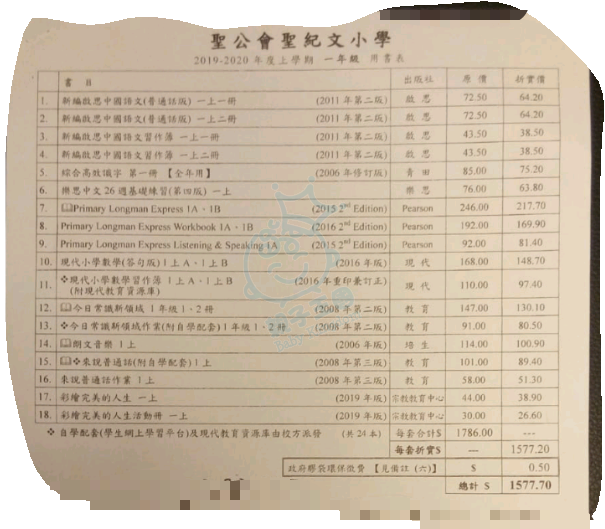 聖公會聖紀文小學
2019-2020 年度上學期 一年級 用書表
書 目 出版社 原 價 折實價
1. 新編啟思中國語文(普通話版) 一上一冊 (2011 年第二版) 啟 思 72.50 64.20
2. 新編啟思中國語文(普通話版) 一上二冊 (2011 年第二版) 啟 思 72.50 64.20
3. 新編啟思中國語文習作簿 一上一冊 (2011 年第二版) 啟 思 43.50 38.50
4. 新編啟思中國語文習作簿 一上二冊 (2011 年第二版) 啟 思 43.50 38.50
5. 綜合高效識字 第一冊 【全年用】 (2006 年修訂版) 青 田 85.00 75.20
6. 樂思中文 26 週基礎練習(第四版) 一上 樂 思 76.00 63.80
7. 🕮Primary Longman Express 1A、1B (2015 2nd Edition) Pearson 246.00 217.70
8. Primary Longman Express Workbook 1A、1B (2016 2nd Edition) Pearson 192.00 169.90
9. Primary Longman Express Listening & Speaking 1A (2015 2nd Edition) Pearson 92.00 81.40
10. 現代小學數學(答句版)1上A、1上B (2016 年版) 現 代 168.00 148.70
11. ❖現代小學數學習作簿 1上A、1上B (2016 年重印兼訂正) 現 代 110.00 97.40
(附現代教育資源庫)
12. 🕮今日常識新領域 1 年級 1、2 冊 (2008 年第二版) 教 育 147.00 130.10
13. ❖今日常識新領域作業(附自學配套)1 年級 1、2 冊 (2008 年第二版) 教 育 91.00 80.50
14. 🕮朗文音樂 1上 (2006 年版) 培 生 114.00 100.90
15. 🕮❖來說普通話(附自學配套)1上 (2008 年第三版) 教 育 101.00 89.40
16. 來說普通話作業 1上 (2008 年第三版) 教 育 58.00 51.30
17. 彩繪完美的人生 一上 (2019 年版) 宗教教育中心 44.00 38.90
18. 彩繪完美的人生活動冊 一上 (2019 年版) 宗教教育中心 30.00 26.60
❖ 自學配套(學生網上學習平台)及現代教育資源庫由校方派發 (共 24 本) 每套合計$ 1786.00 ---
每套折實$ — 1577.20
政府膠袋環保徵費 【見備註 (六)】 $ 0.50
總計 $ 1577.70